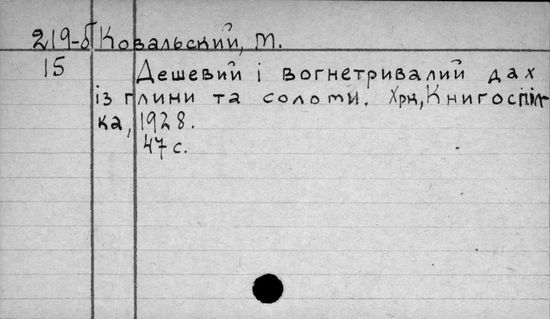 219-б Ковальский, М.
15 Дешевий і вогнетривалий дах
із глини та соломи. Хрк, Книгоспіл
ка, 1928.
47 с.